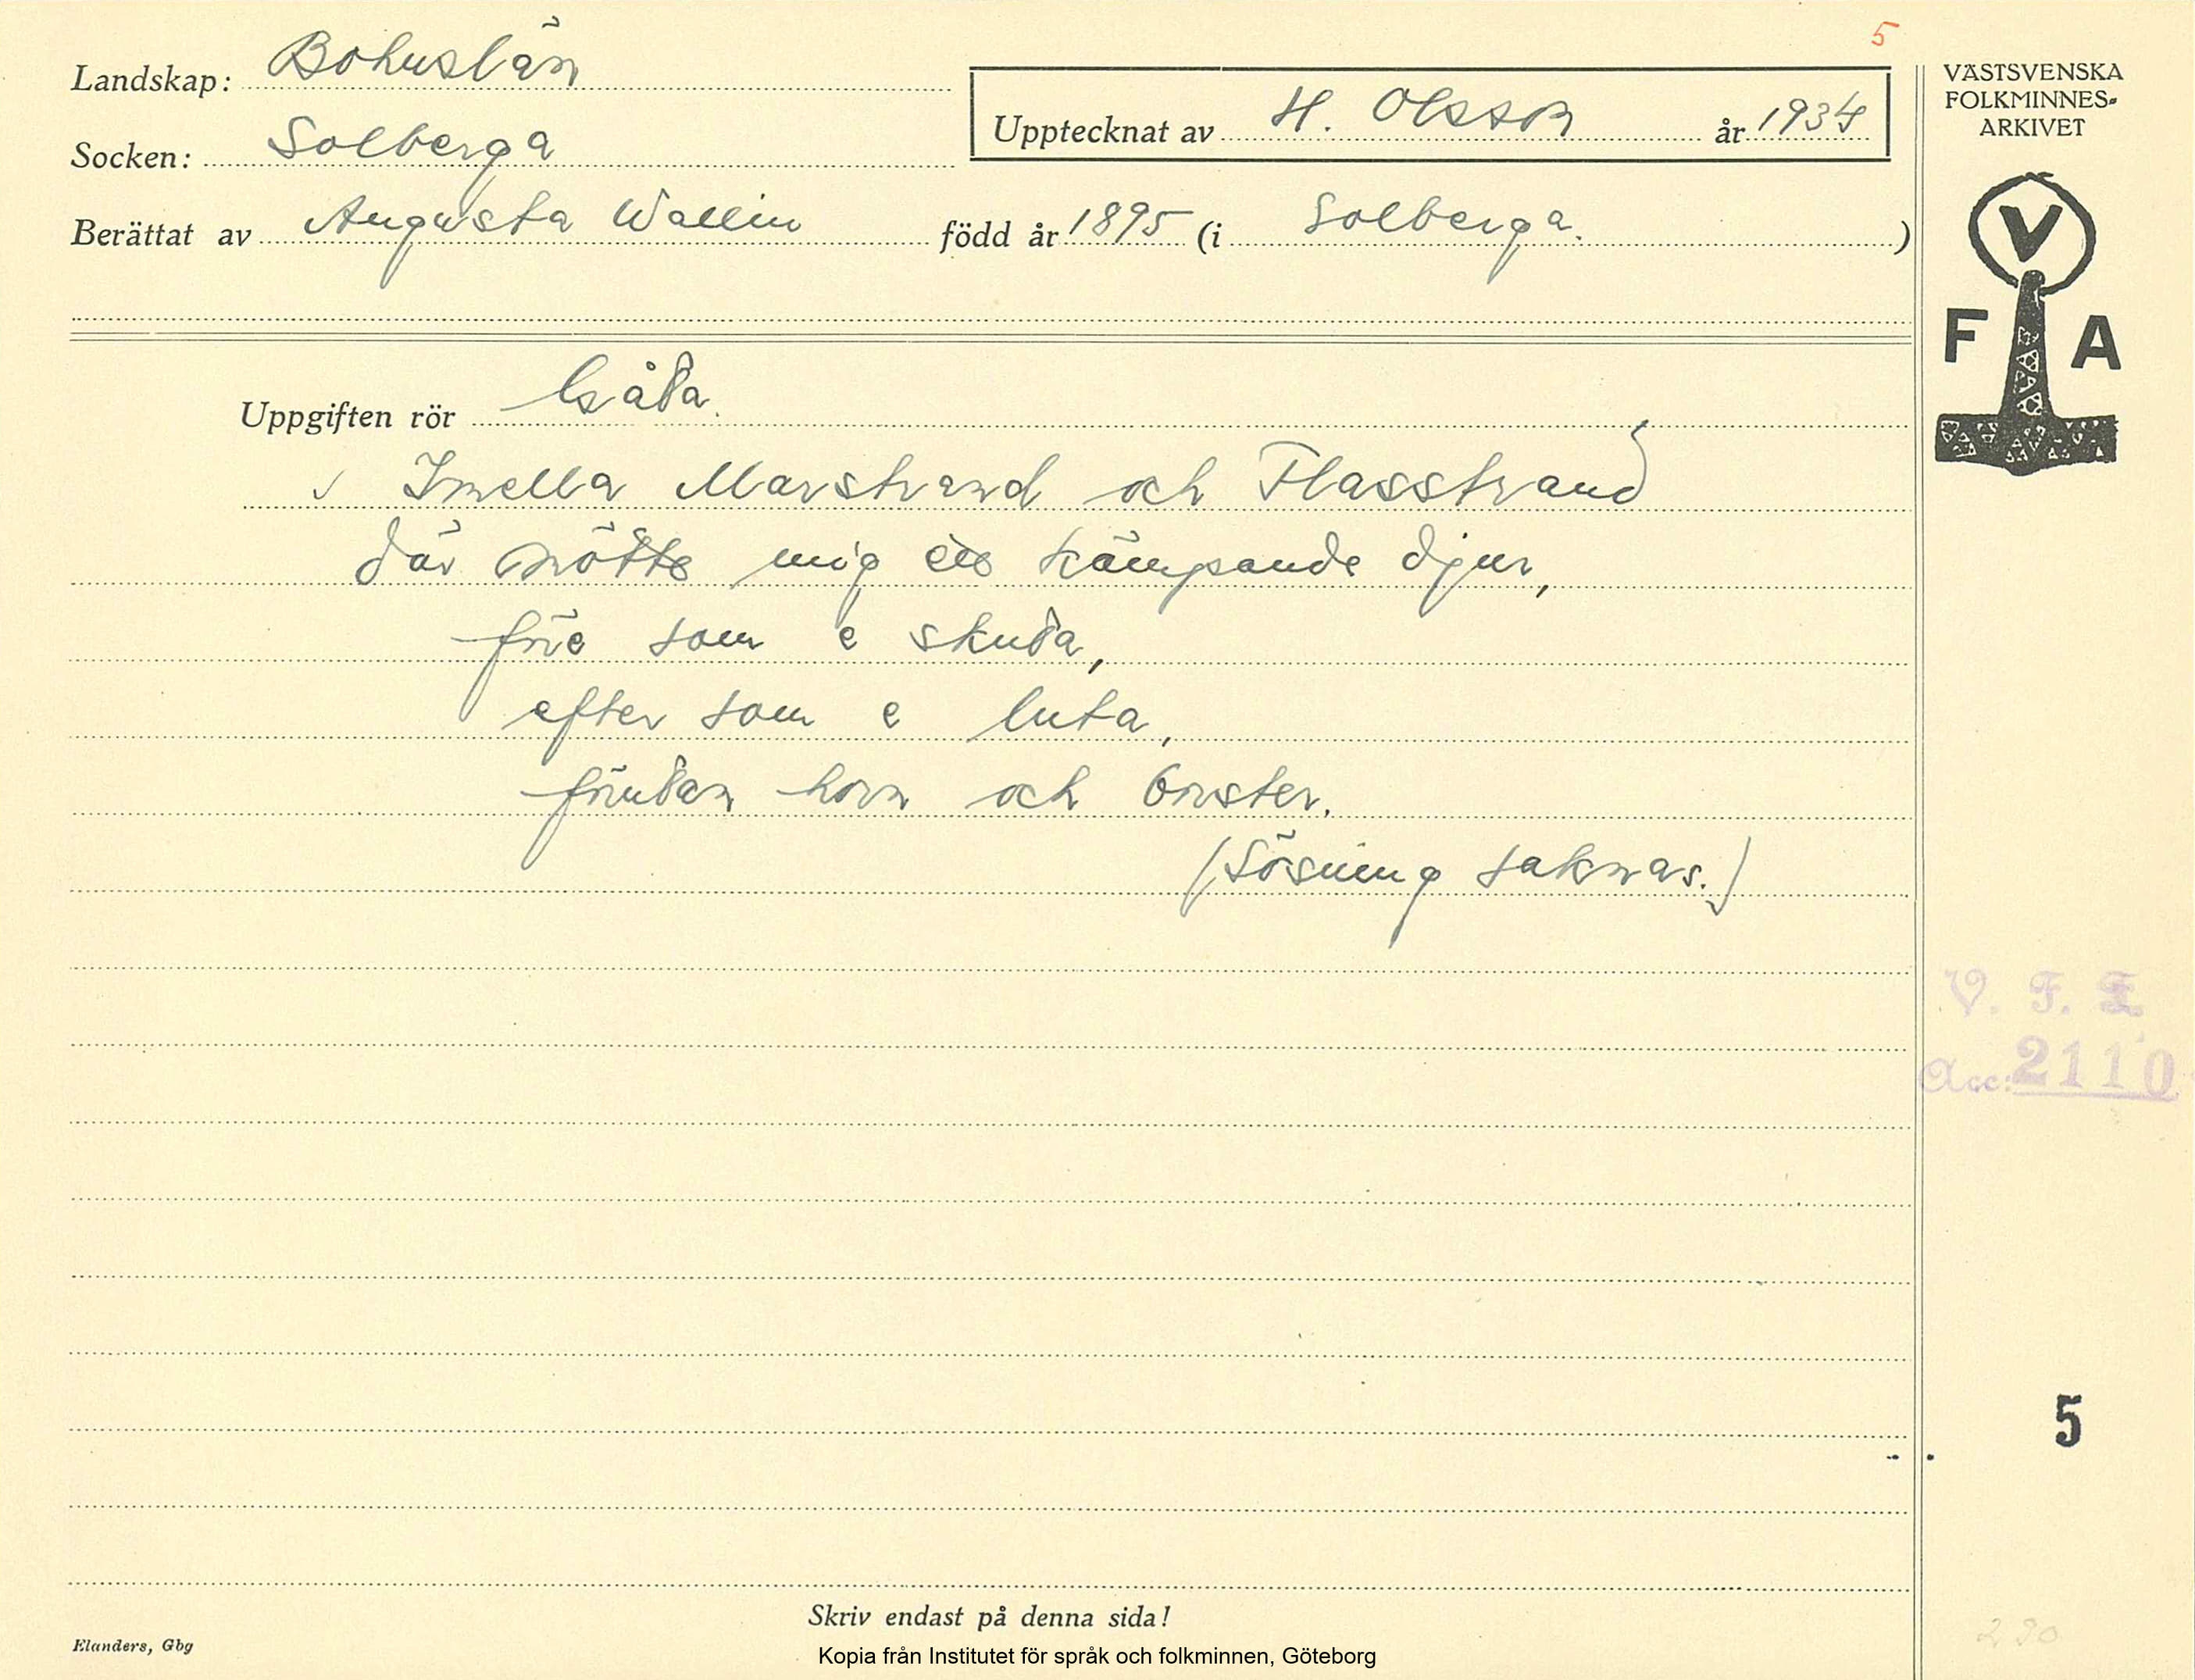 5
Landskap: Bohuslän
Upptecknat av H. Olsson år 1934
Socken: Solberga
Berättat av Augusta Wallin född år 1895 (i Solberga.)
VÄSTSVENSKA
FOLKMINNES-
ARKIVET
V
F A
Uppgiften rör Gåta.
Imella Marstrand och Flasstrand
där mötte mig ett kämpande djur,
före som e skuta,
efter som e luta,
förutan horn och börster.
(Lösning saknas.)
V. F. I.
Acc: 2110
5
290
Skriv endast på denna sida!
Elanders, Gbg
Kopia från Institutet för språk och folkminnen, Göteborg